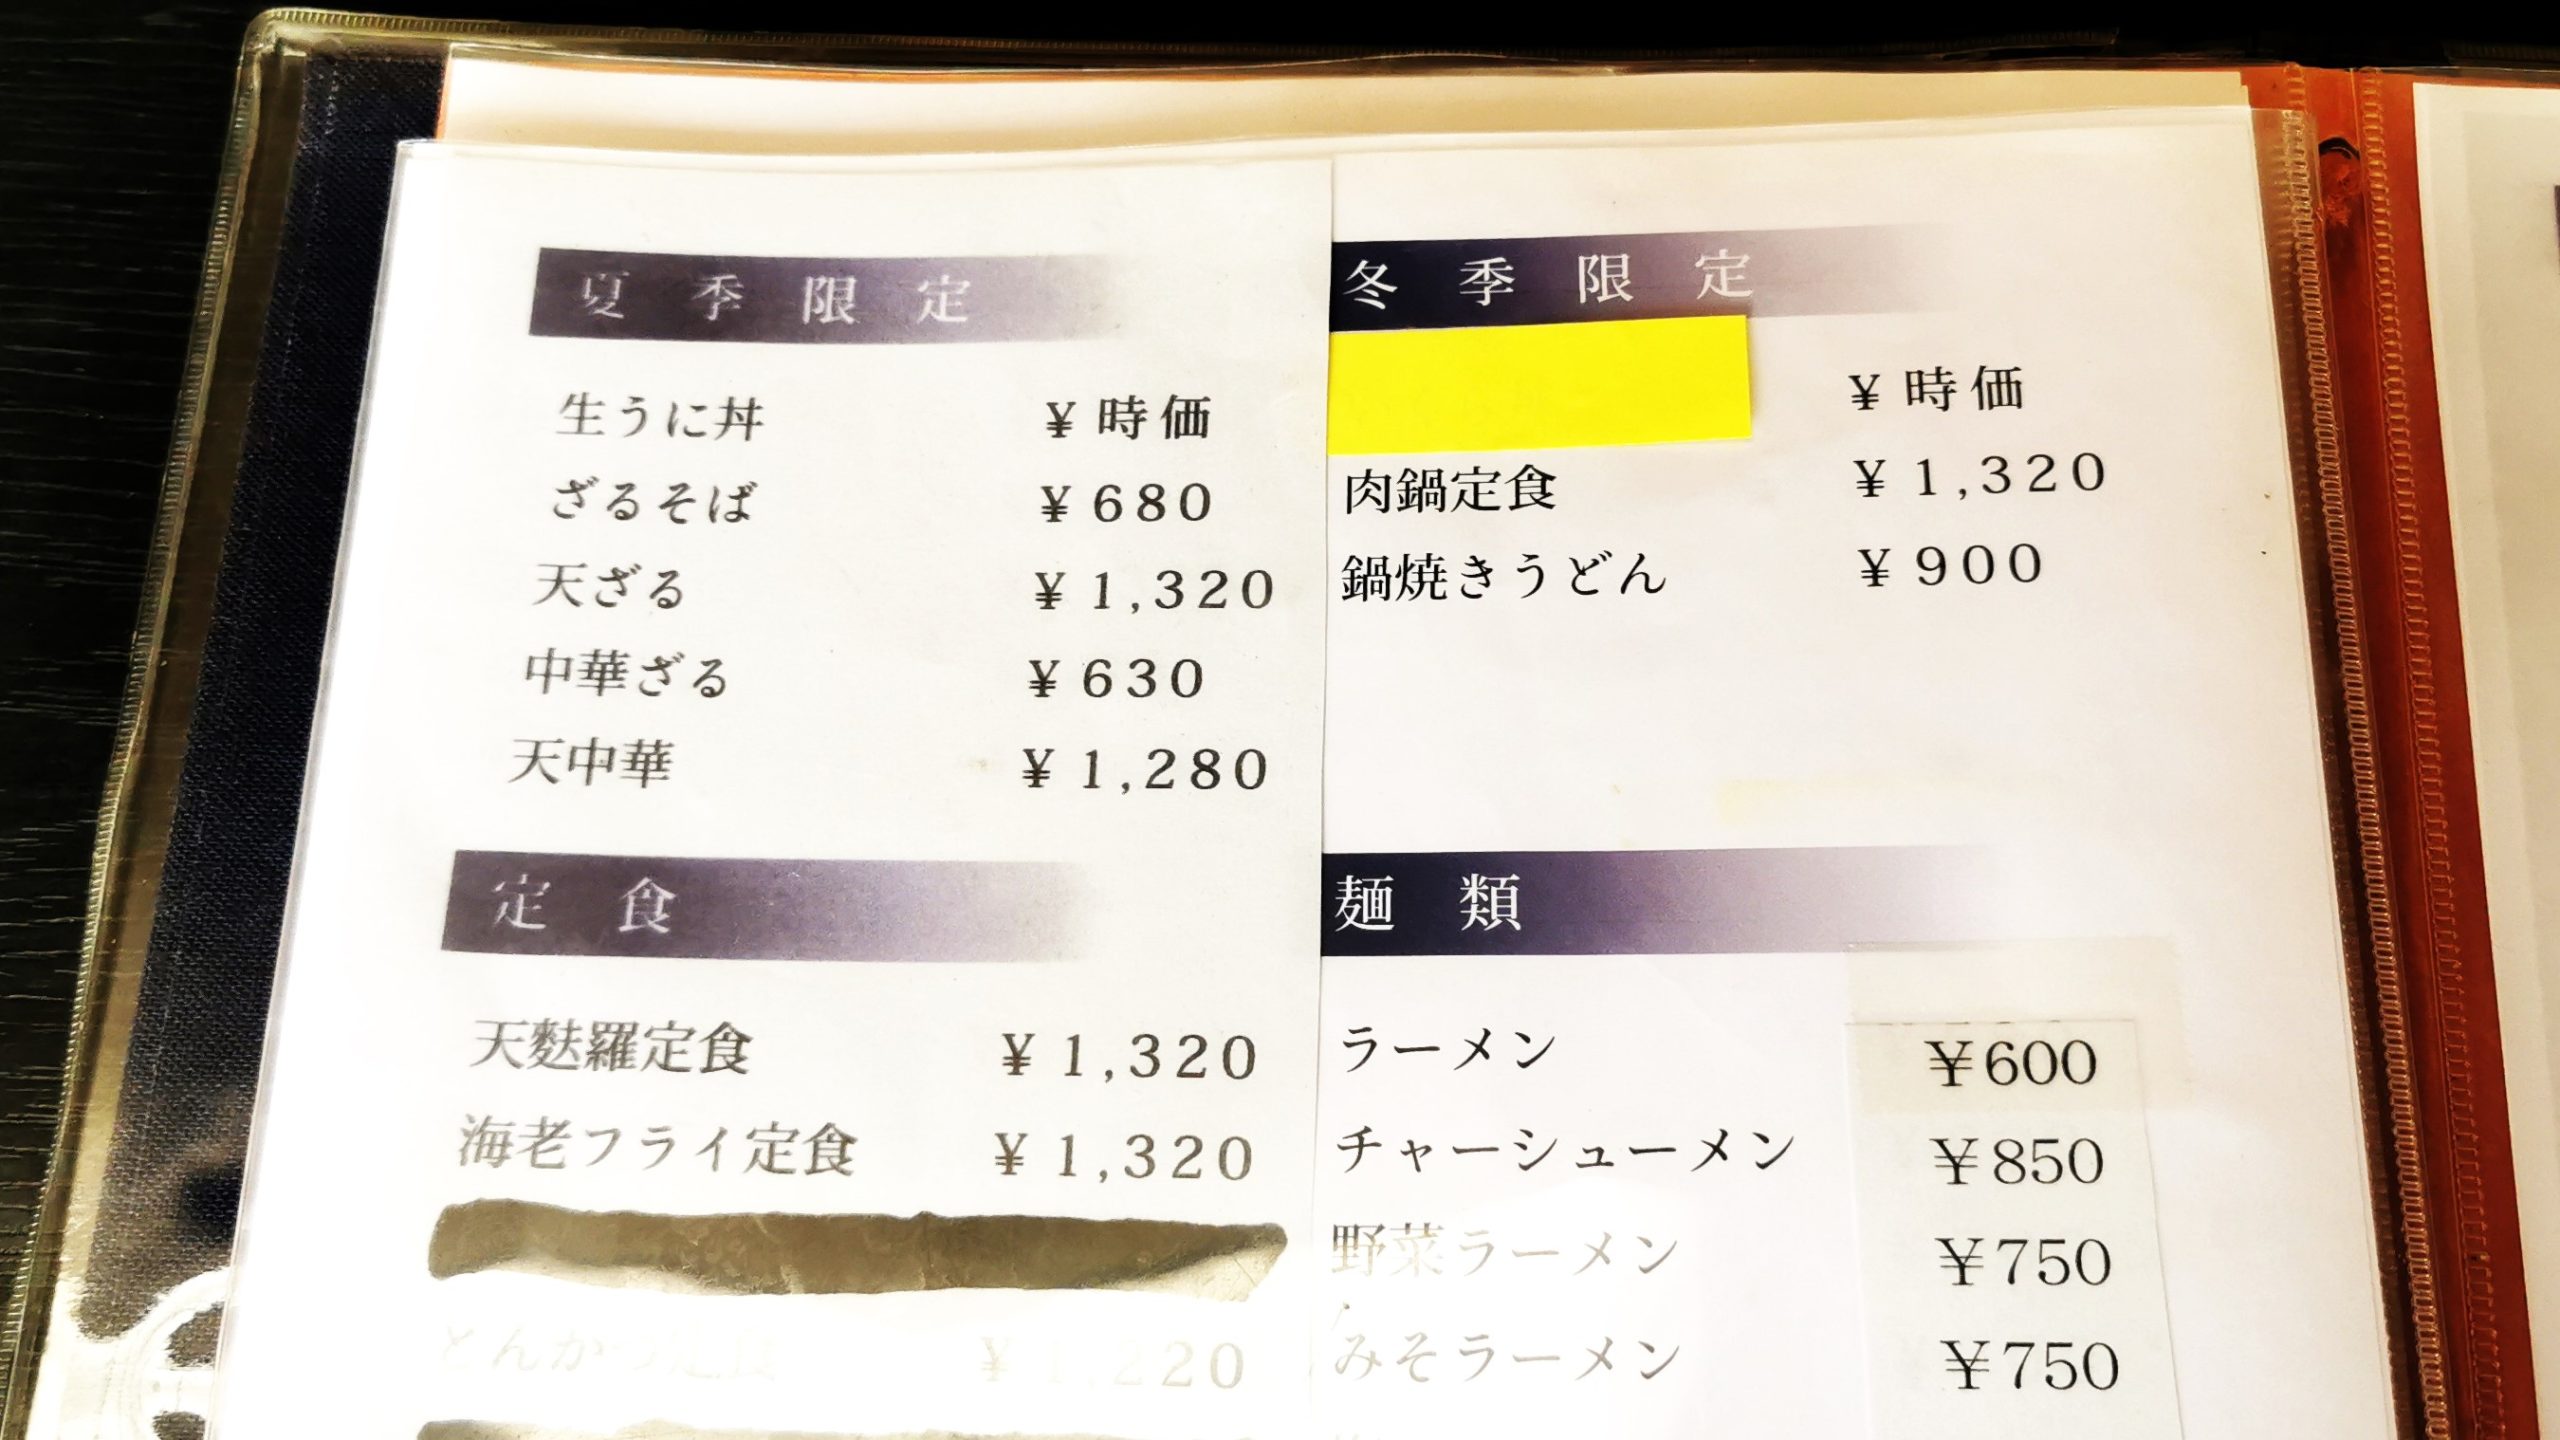 夏季限定
生うに丼 ￥時価
ざるそば ￥680
天ざる ￥1,320
中華ざる ￥630
天中華 ￥1,280
定食
天麩羅定食 ￥1,320
海老フライ定食 ￥1,320
とんかつ定食 ￥1,220
冬季限定
￥時価
肉鍋定食 ￥1,320
鍋焼きうどん ￥900
麺類
ラーメン ￥600
チャーシューメン ￥850
野菜ラーメン ￥750
みそラーメン ￥750